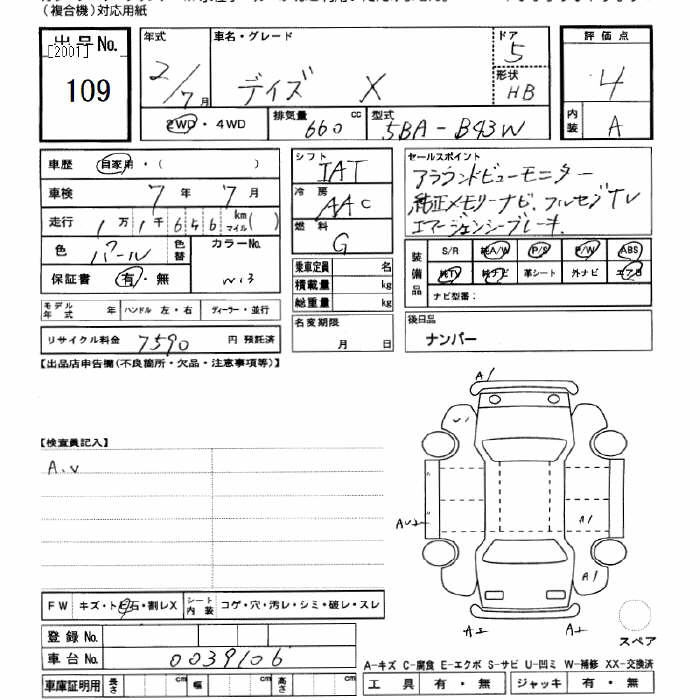 （複合機）対応用紙
出品No.
[2001]
109
年式
2/7月
車名・グレード
デイズ X
ドア
5
形状
HB
評価点
4
内装
A
2WD・4WD
排気量
660 cc
型式
5BA-B43W
車歴 自家用・( )
車検 7年 7月
走行 1万1千646 km マイル( )
色 パール
色替
カラーNo.
保証書 有・無
モデル年式 年
ハンドル 左・右
ディーラー・並行
リサイクル料金 7590 円 預託済
シフト
IAT
冷房
AAC
燃料
G
乗車定員 名
積載量 kg
総重量 kg
名変期限
月 日
セールスポイント
アラウンドビューモニター
純正メモリーナビ、フルセグTV
エマージェンシーブレーキ、
装備品
S/R 純A/W P/S P/W ABS
純TV 純ナビ 革シート 外ナビ エアB
ナビ型番：
後日品
ナンバー
【出品店申告欄(不良箇所・欠品・注意事項等)】
【検査員記入】
A.U
A1
U1
AU2
A1
A1
A2
A2
スペア
FW キズ・ト石・割レX
シート内装 コゲ・穴・汚レ・シミ・破レ・スレ
登録No.
車台No. 0039106
車庫証明用 長さ cm 幅 cm 高さ cm
A-キズ C-腐食 E-エクボ S-サビ U-凹ミ W-補修 XX-交換済
工具 有・無 ジャッキ 有・無